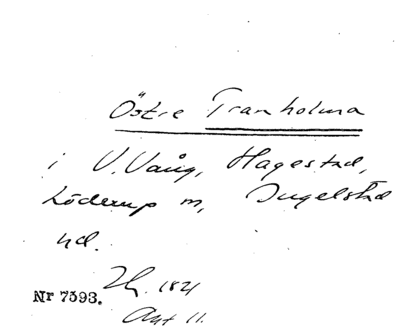 Östre Tranholma
i V. Vång, Hagestad,
Löderup m, Ingelstad
hd.
Nr 7593. 1821
Akt 11.